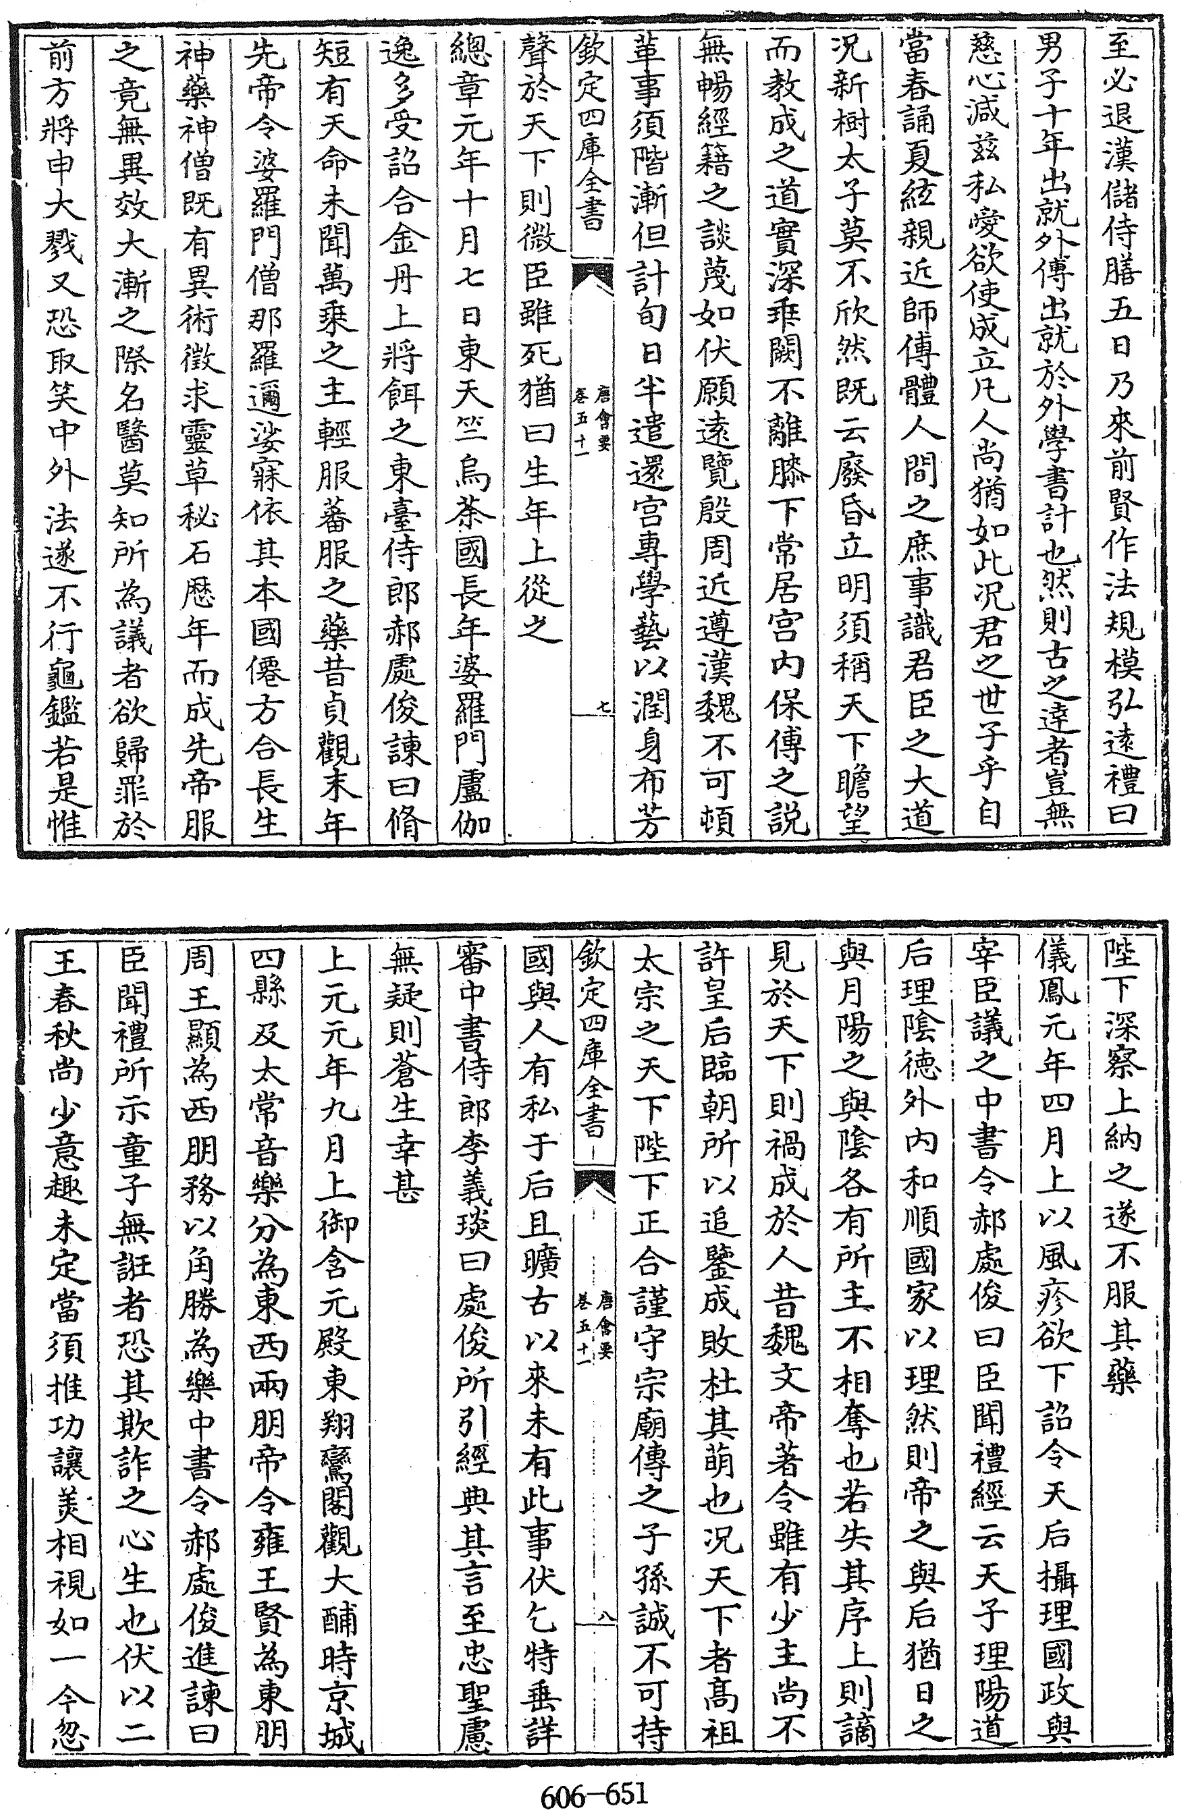 至必退漢儲侍膳五日乃來前賢作法規模弘遠禮曰
男子十年出就外傅出就於外學書計也然則古之逹者豈無
慈心減兹私愛欲使成立凡人尚猶如此况君之世子乎自
當春誦夏絃親近師傅體人間之庶事識君臣之大道
况新樹太子莫不欣然既云廢昏立明須稱天下瞻望
而教成之道實深乖闕不離膝下常居宫内保傅之説
無暢經籍之談蔑如伏願遠覽殷周近遵漢魏不可頓
革事須階漸但計旬日半遣還宫專學藝以潤身布芳
欽定四庫全書
唐會要
卷五十一
七
聲於天下則微臣雖死猶曰生年上從之
總章元年十月七日東天竺烏荼國長年婆羅門盧伽
逸多受詔合金丹上將餌之東臺侍郎郝處俊諫曰脩
短有天命未聞萬乘之主輕服蕃服之藥昔貞觀末年
先帝令婆羅門僧那羅邇娑寐依其本國僊方合長生
神藥神僧既有異術徵求靈草秘石歴年而成先帝服
之竟無異效大漸之際名醫莫知所為議者欲歸罪於
前方將申大戮又恐取笑中外法遂不行龜鑑若是惟
陛下深察上納之遂不服其藥
儀鳳元年四月上以風疹欲下詔令天后攝理國政與
宰臣議之中書令郝處俊曰臣聞禮經云天子理陽道
后理陰德外内和順國家以理然則帝之與后猶日之
與月陽之與陰各有所主不相奪也若失其序上則謫
見於天下則禍成於人昔魏文帝著令雖有少主尚不
許皇后臨朝所以追鑒成敗杜其萌也况天下者高祖
太宗之天下陛下正合謹守宗廟傳之子孫誠不可持
欽定四庫全書
唐會要
卷五十一
八
國與人有私于后且曠古以來未有此事伏乞特垂詳
審中書侍郎李義琰曰處俊所引經典其言至忠聖慮
無疑則蒼生幸甚
上元元年九月上御含元殿東翔鸞閣觀大酺時京城
四縣及太常音樂分為東西兩朋帝令雍王賢為東朋
周王顯為西朋務以角勝為樂中書令郝處俊進諫曰
臣聞禮所示童子無誑者恐其欺詐之心生也伏以二
王春秋尚少意趣未定當須推功讓美相視如一今忽
606-651